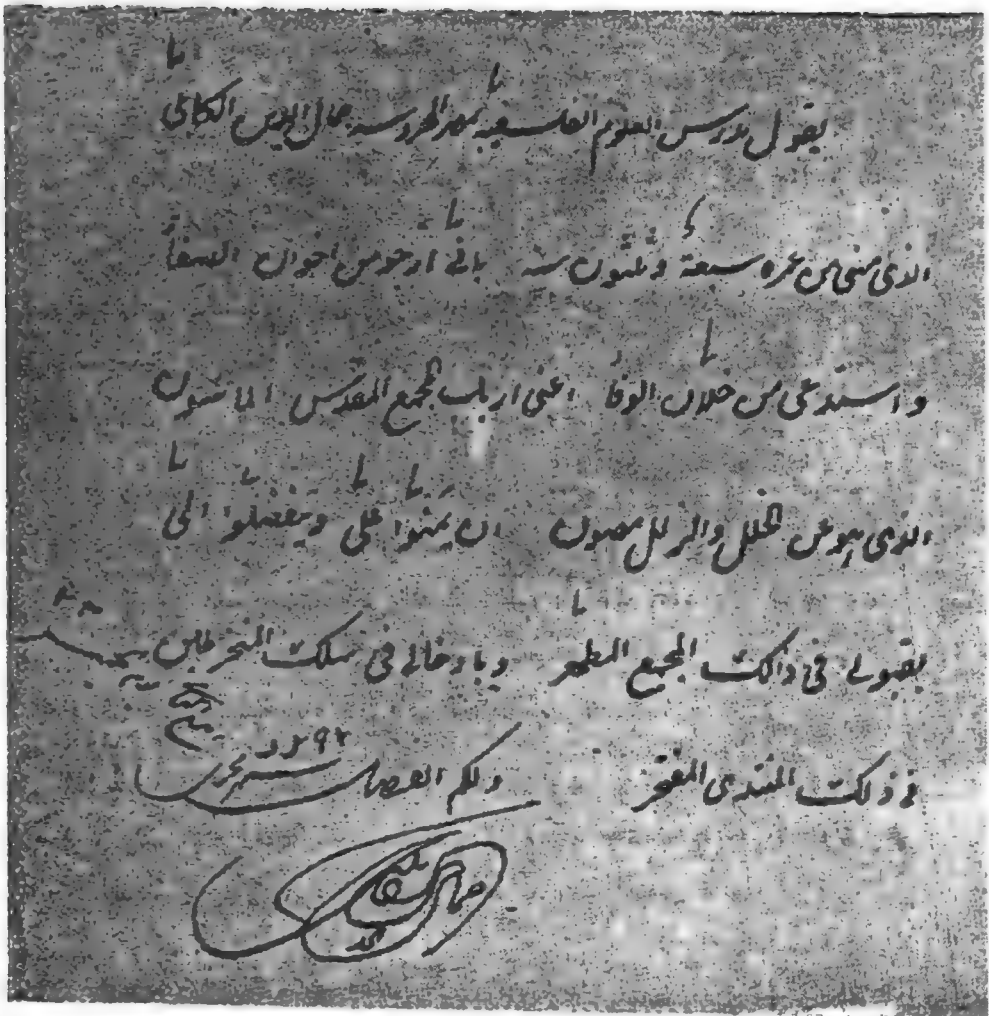 يقول مدرس العلوم الفلسفيه بمصر المحروسه جمال الدين الكابلى
الذى مضى من عمره سبعة وثلثون سنه بانى ارجو من اخوان الصفا
واستدعى من خلان الوفا اعنى ارباب المجمع المقدس الماسون
الذى هو عن الخلل والزلل مصون ان يمنوا على ويتفضلوا الى
بقبولى فى ذلك المجمع المطهر وبادخالى فى سلك المنخرطين
فى ذلك المنتدى المفتخر ولكم الفضل